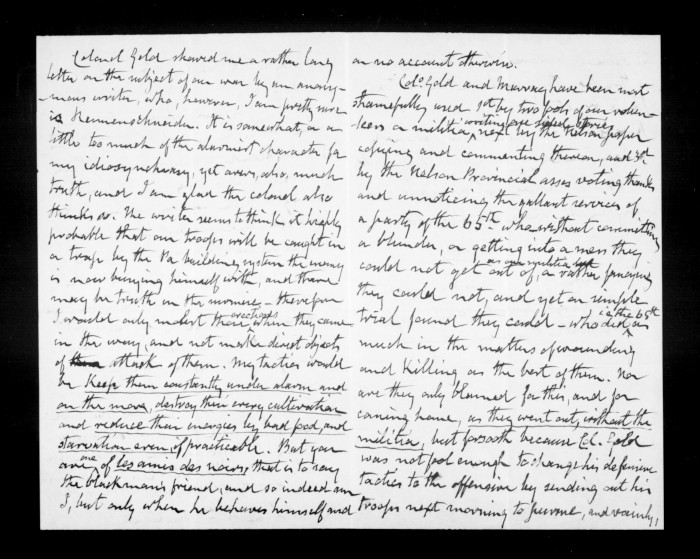 Colonel Gold showed me a rather long
letter on the subject of our war by an anony-
-mous writer, who, however, I am pretty sure
is Hemmenschneider. It is somewhat, or a
little too much of the alarmist character for
my idiosyncrasy, yet avers, also, much
truth, and I am glad the colonel also
thinks so. The writer seems to think it highly
probable that our troops will be caught in
a trap by the Pa building system the enemy
is now busying himself with, and there
may be truth in the surmise - therefore
I would only molest them, when they came
in the way, and not make direct objects
of attack of them. My tactics would
be keep them constantly under alarm and
on the move, destroy their every cultivation
and reduce their energies by bad food, and
starvation even, if practicable. But you
are one of les amis des noirs, that is to say
the blackman's friend, and so indeed am
I, but only when he behaves himself and
on no account otherwise.
Col. Gold and Murray have been most
shamefully used 1st by two fools of our volun-
-teers or militia writing stories, next by the Nelson paper
copying and commenting thereon, and 3rd
by the Nelson Provincial asses voting thanks
and unnoticing the gallant services of
a party of the 65th who without committing
a blunder, or getting into a mess they
could not get out of, as our militia left, or rather fancying
they could not, and yet on simple
trial found they could - who did, i.e. the 65th, as
much in the matters of wounding
and killing as the best of them. Nor
are they only blamed for this, and for
coming home, as they went out, without the
militia, but forsooth because Col. Gold
was not fool enough to change his defensive
tactics to the offensive by sending out his
troops next morning to pursue, and vainly,